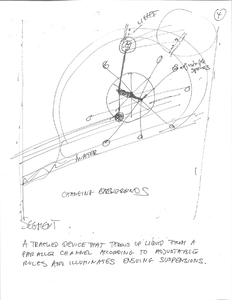 4
LIGHT
ADJUSTABLE
WATER
CHANGING BACKGROUNDS
SEGMENT
A TRAILED DEVICE THAT THROWS UP LIQUID FROM A
PARALLEL CHANNEL ACCORDING TO ADJUSTABLE
RULES AND ILLUMINATES ENSUING SUSPENSIONS.